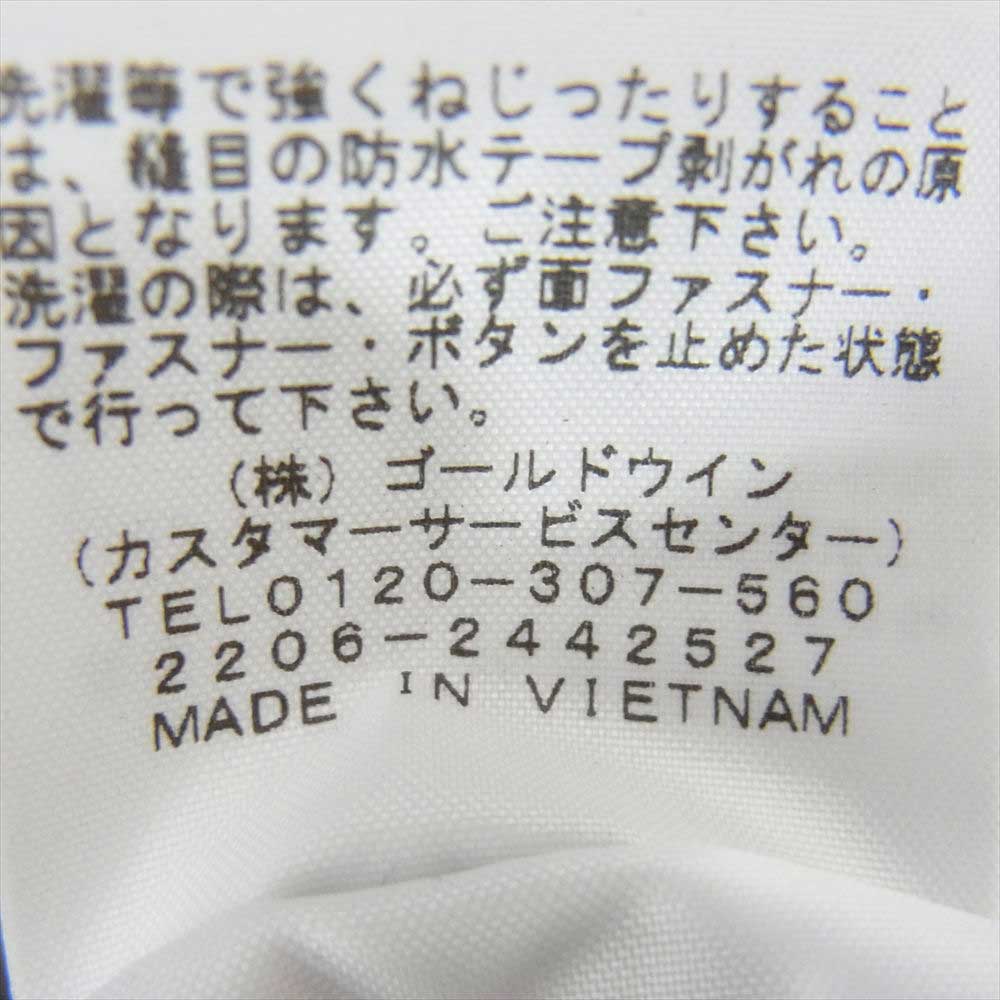 洗濯等で強くねじったりすること
は、縫目の防水テープ剥がれの原
因となります。ご注意下さい。
洗濯の際は、必ず面ファスナー・
ファスナー・ボタンを止めた状態
で行って下さい。
(株)ゴールドウイン
(カスタマーサービスセンター)
TEL0120-307-560
2206-2442527
MADE IN VIETNAM